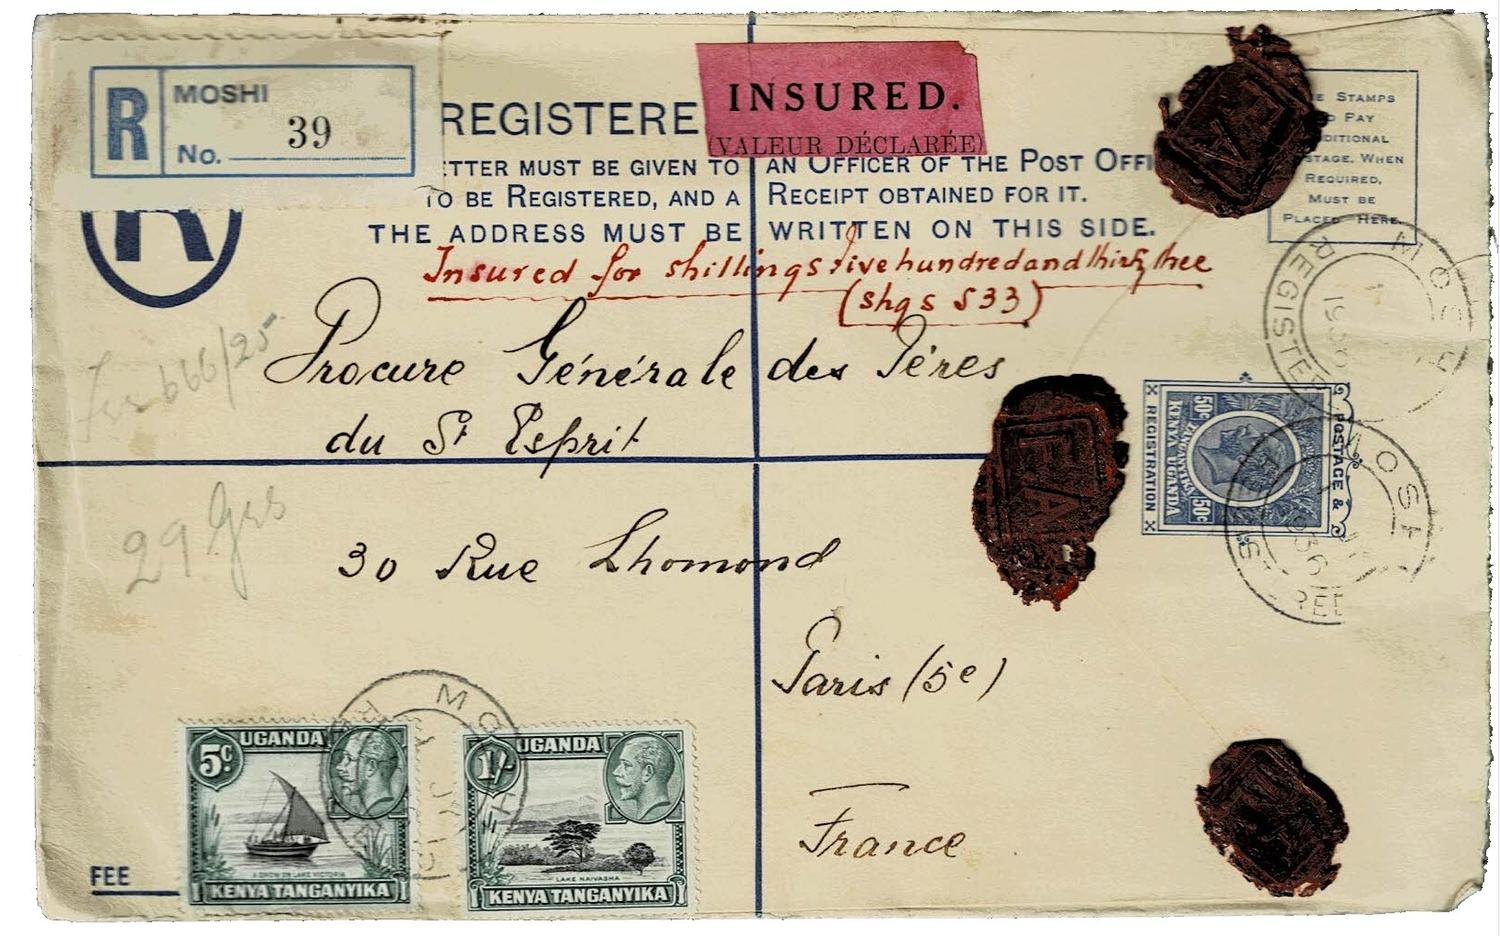 R MOSHI
No. 39
REGISTERE
INSURED.
(VALEUR DÉCLARÉE)
ETTER MUST BE GIVEN TO AN OFFICER OF THE POST OFFI
TO BE REGISTERED, AND A RECEIPT OBTAINED FOR IT.
THE ADDRESS MUST BE WRITTEN ON THIS SIDE.
E STAMPS
O PAY
DITIONAL
STAGE. WHEN
REQUIRED,
MUST BE
PLACED HERE.
R
Insured for shillings five hundred and thirty three
(shgs 533)
Procure Générale des Pères
du St Esprit
30 Rue Lhomond
Paris (5e)
France
666/25
29 grs
MOSHI
REGISTERED
POSTAGE &
50c KENYA TANGANYIKA UGANDA 50c
REGISTRATION
MOSHI
1936
FA
FA
FEE
5c UGANDA
A DHOW ON LAKE VICTORIA
KENYA TANGANYIKA
1/- UGANDA
LAKE NAIVASHA
KENYA TANGANYIKA